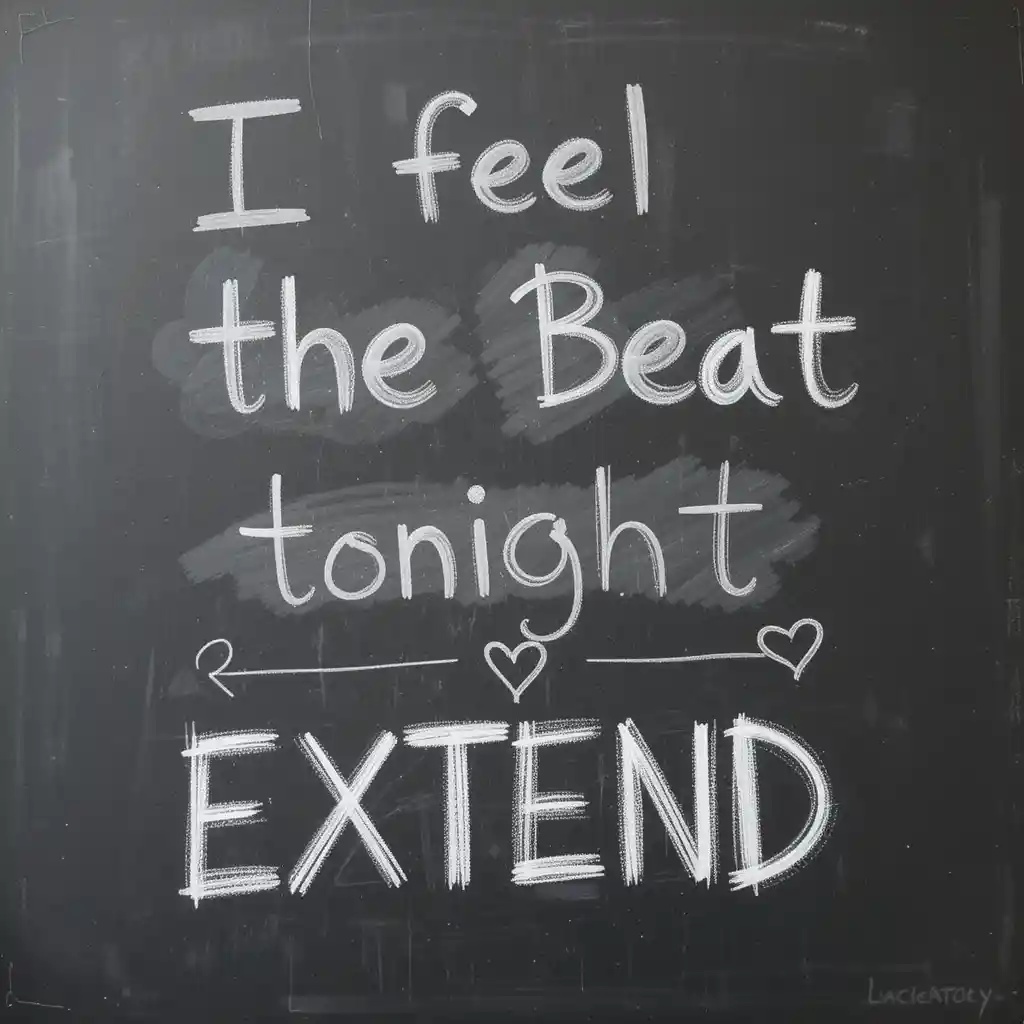 I feel
the Beat
tonight
EXTEND